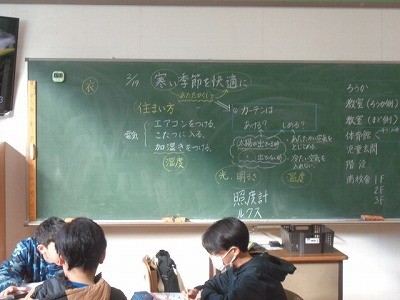 衣
2/19 寒い季節を快適に
あたたかくして
住まい方
電気
エアコンをつける。
こたつに入る。
加湿きをつける。
湿度
カーテンは
あける? しめる?
太陽の出る時
出ない時
あたたかい空気を
とじこめる。
冷たい空気を
入れない。
光、明るさ
温度
照度計
ルクス
ろうか
教室(ろうか側)
教室(まど側)
体育館
児童玄関
階段
南校舎 1F
2F
3F